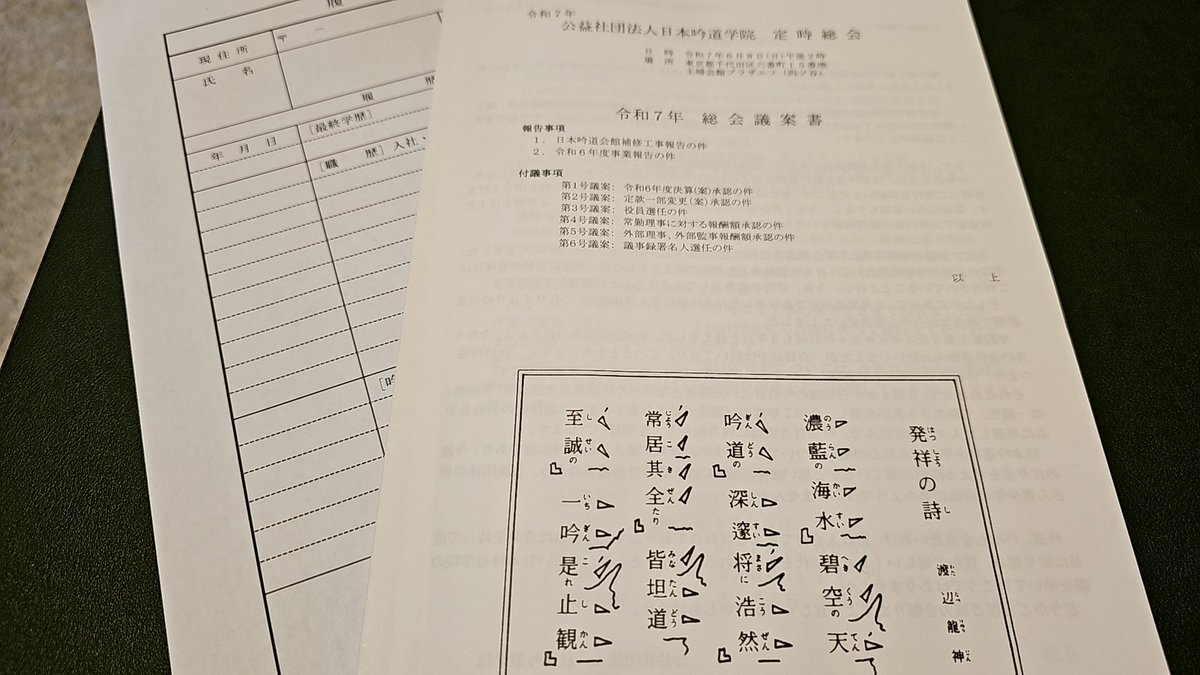 令和7年
公益社団法人日本吟道学院 定時総会
日時 令和7年6月8日(日)午後2時
場所 東京都千代田区六番町15番地
主婦会館プラザエフ(四ツ谷)
令和7年 総会議案書
報告事項
1.日本吟道会館補修工事報告の件
2.令和6年度事業報告の件
付議事項
第1号議案:令和6年度決算(案)承認の件
第2号議案:定款一部変更(案)承認の件
第3号議案:役員選任の件
第4号議案:常勤理事に対する報酬額承認の件
第5号議案:外部理事、外部監事報酬額承認の件
第6号議案:議事録署名人選任の件
以上
発祥の詩
渡辺龍神
濃藍の海水碧空の天
吟道の深邃将に浩然
常居其全たり皆坦道
至誠の一吟是れ止観
履
現住所
〒 －
氏名
履歴
年月日
[最終学歴]
[職歴]入社・